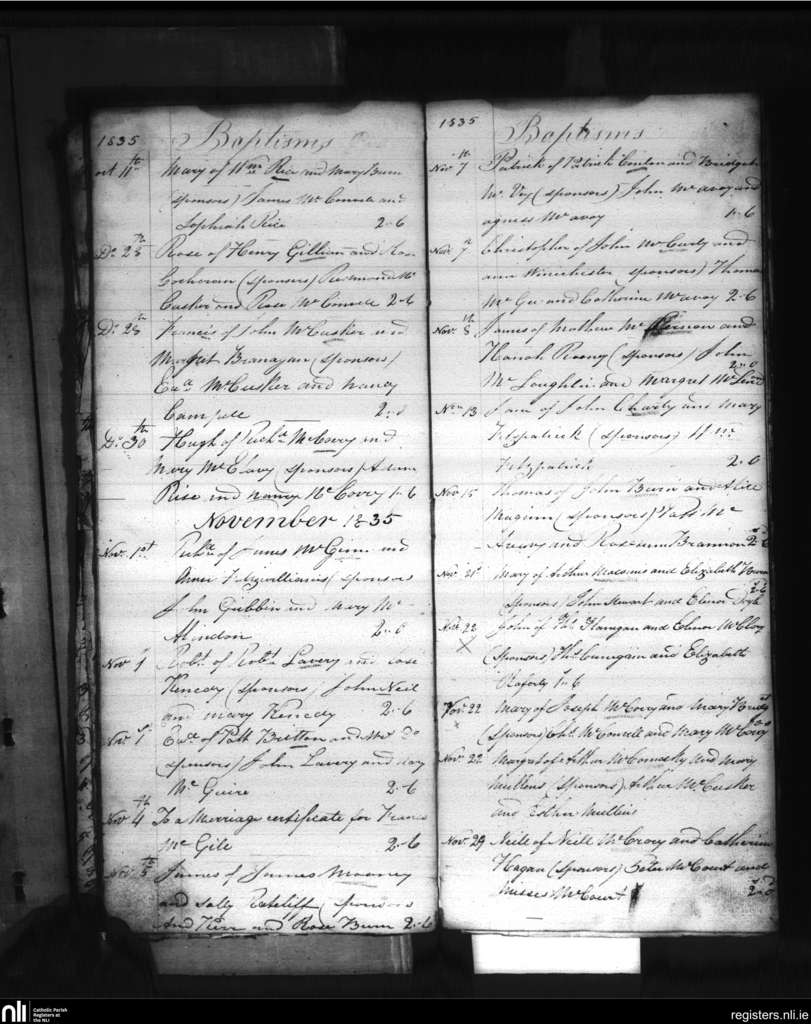 1835 Baptisms
Oct 11th Mary of Wm Rice and Mary Burn
(sponsors) James McConvele and
Sophiah Rice 2-6
Do 25th Rose of Henry Gillian and Rose
Corkoran (sponsors) Redmond Mc
Casker and Rose McConvele 2-6
Do 28th Francis of John McCusker and
Margret Branagan (sponsors)
McCusker and Nancy
Campele 2-0
Do 30th Hugh of McCorry and
Mary McClavy (sponsors) Adam
Rise and Nancy McCorry 1-6
November 1835
Nov. 1st of James McGinn and
Fitzwilliams (sponsors
John Gribbin and Mary Mc
Alindon 2-0
Nov 1 Robt. of Robt Lavery and
Kenedy (sponsors) John Neil
and Mary Kenedy 2-6
Nov 1 of Patt Britton and
sponsors) John Lavery and
McGuire 2-6
Nov 4th To a Marriage certificate for Francis
McGile 2-6
Nov. 5th James of James Mooney
and Sally Ratcliff (sponsors
And Kerr and Rose Burn 2-6
1835 Baptisms
Nov. 7th Patrick of Patrick Conlon and Bridget
McVey (sponsors) John McAvoy and
agness McAvoy 1-6
Nov. 7th Christopher of John McCurly and
ann Winichester (sponsors) Thomas
McGee and Catherine McAvoy 2-6
Nov. 8th James of Mathew McKernon and
Hanah Roony (sponsors) John
McLoughlin and Margret 2-0
Nov 13 Jane of John Charty and Mary
Fitzpatrick (sponsors) Wm
Fitzpatrick 2-0
Nov 15 Thomas of John Burn and Alice
Maginn (sponsors) Patt Mc
and Rosanna Brannon 2-6
Nov. 21st Mary of Arthur and Elizabeth
(Sponsors) John Stewart and Elenor 2-6
Nov. 22 John of Pat Flanigan and Elenor McCloy
(Sponsors) Ths. Cunigan and Elizabeth
Raferty 1-6
Nov. 22 Mary of Joseph McCorry and Mary
(Sponsors) McConvell and Mary McCorry
Nov. 22 Margret of Arthur McComasky and Mary
Mullens (Sponsors) Arthur McCusker
and Esther Mullins
Nov. 29 Neile of Neile McCrory and Catherine
Hagan (Sponsors) Peter McCourt and
Misses McCourt 2-0
nli Catholic Parish
Registers at
the NLI
registers.nli.ie